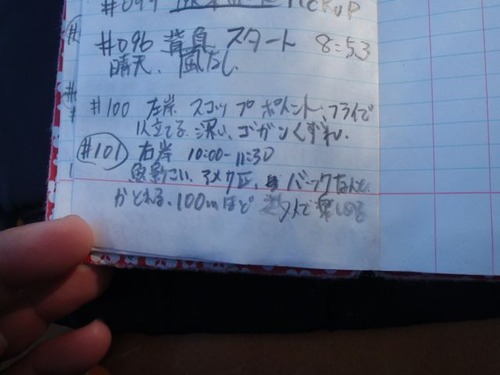 #099 PICKUP
#096 背負 スタート 8:53
晴天、風なし
#100 左岸 スコップ ポイント、フライで
深い、ゴガンくずれ、
#101 右岸 10:00-11:30
魚影こい、アメ9匹、バックなんと
かとれる、100mほど